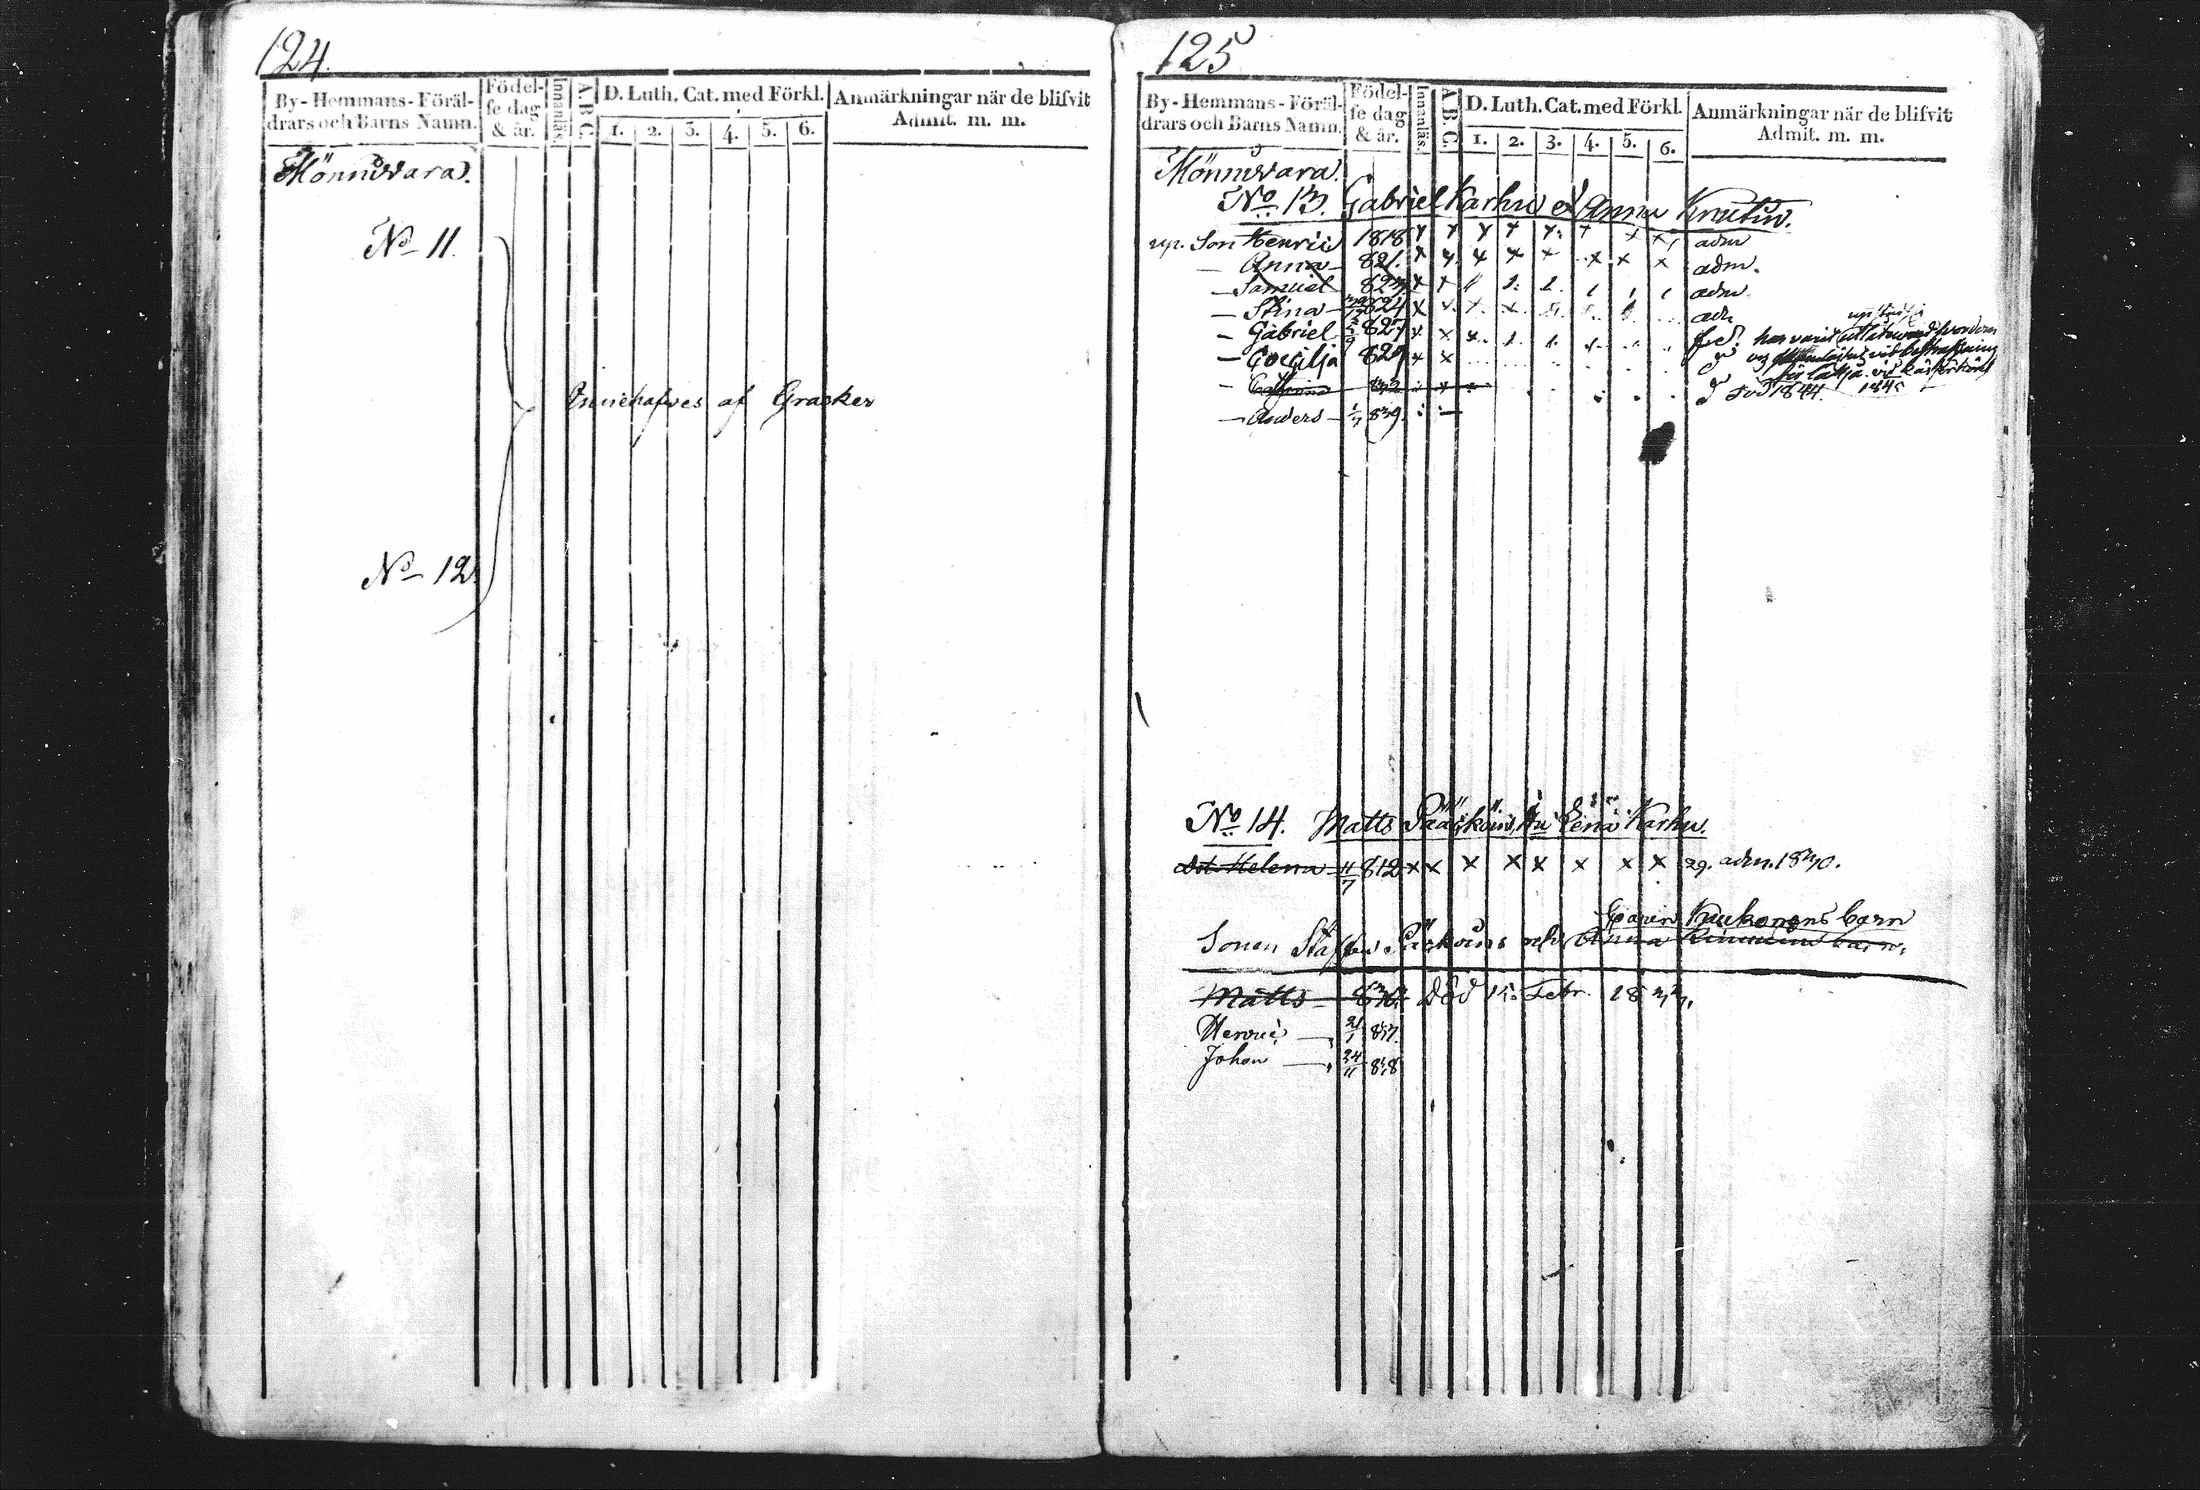 124.
By-Hemmans-Föräl-
drars och Barns Namn.
Födel-
se dag
& år.
Innanläs.
A.B.C.
D. Luth. Cat. med Förkl.
1. 2. 3. 4. 5. 6.
Anmärkningar när de blifvit
Admit. m. m.
Mönnivara.
No 11.
Innehafves af Grasker
No 12.
125
By-Hemmans-Föräl-
drars och Barns Namn.
Födel-
se dag
& år.
Innanläs.
A.B.C.
D. Luth. Cat. med Förkl.
1. 2. 3. 4. 5. 6.
Anmärkningar när de blifvit
Admit. m. m.
Mönnivara.
No 13. Gabriel Karhu Anna
Son Henric 1818 x x x x x x x x adm
— Anna 821. x x x x x x x x adm.
— Samuel 823 adm.
— Stina 824 x x x x adm
— Gabriel 827 x x x har varit
— Coecilja 829 x x
Död 1844. 1845
— Anders — 1/7 839.
No 14. Matts Lena Karhu.
Helena 11/7 812 x x x x x x x x 29. adm. 1830.
Kaukonens barn
Sonen Staffan Anna barn.
Matts Död 15 Febr.
Henric — 21/1 837.
Johan — 24/11 838